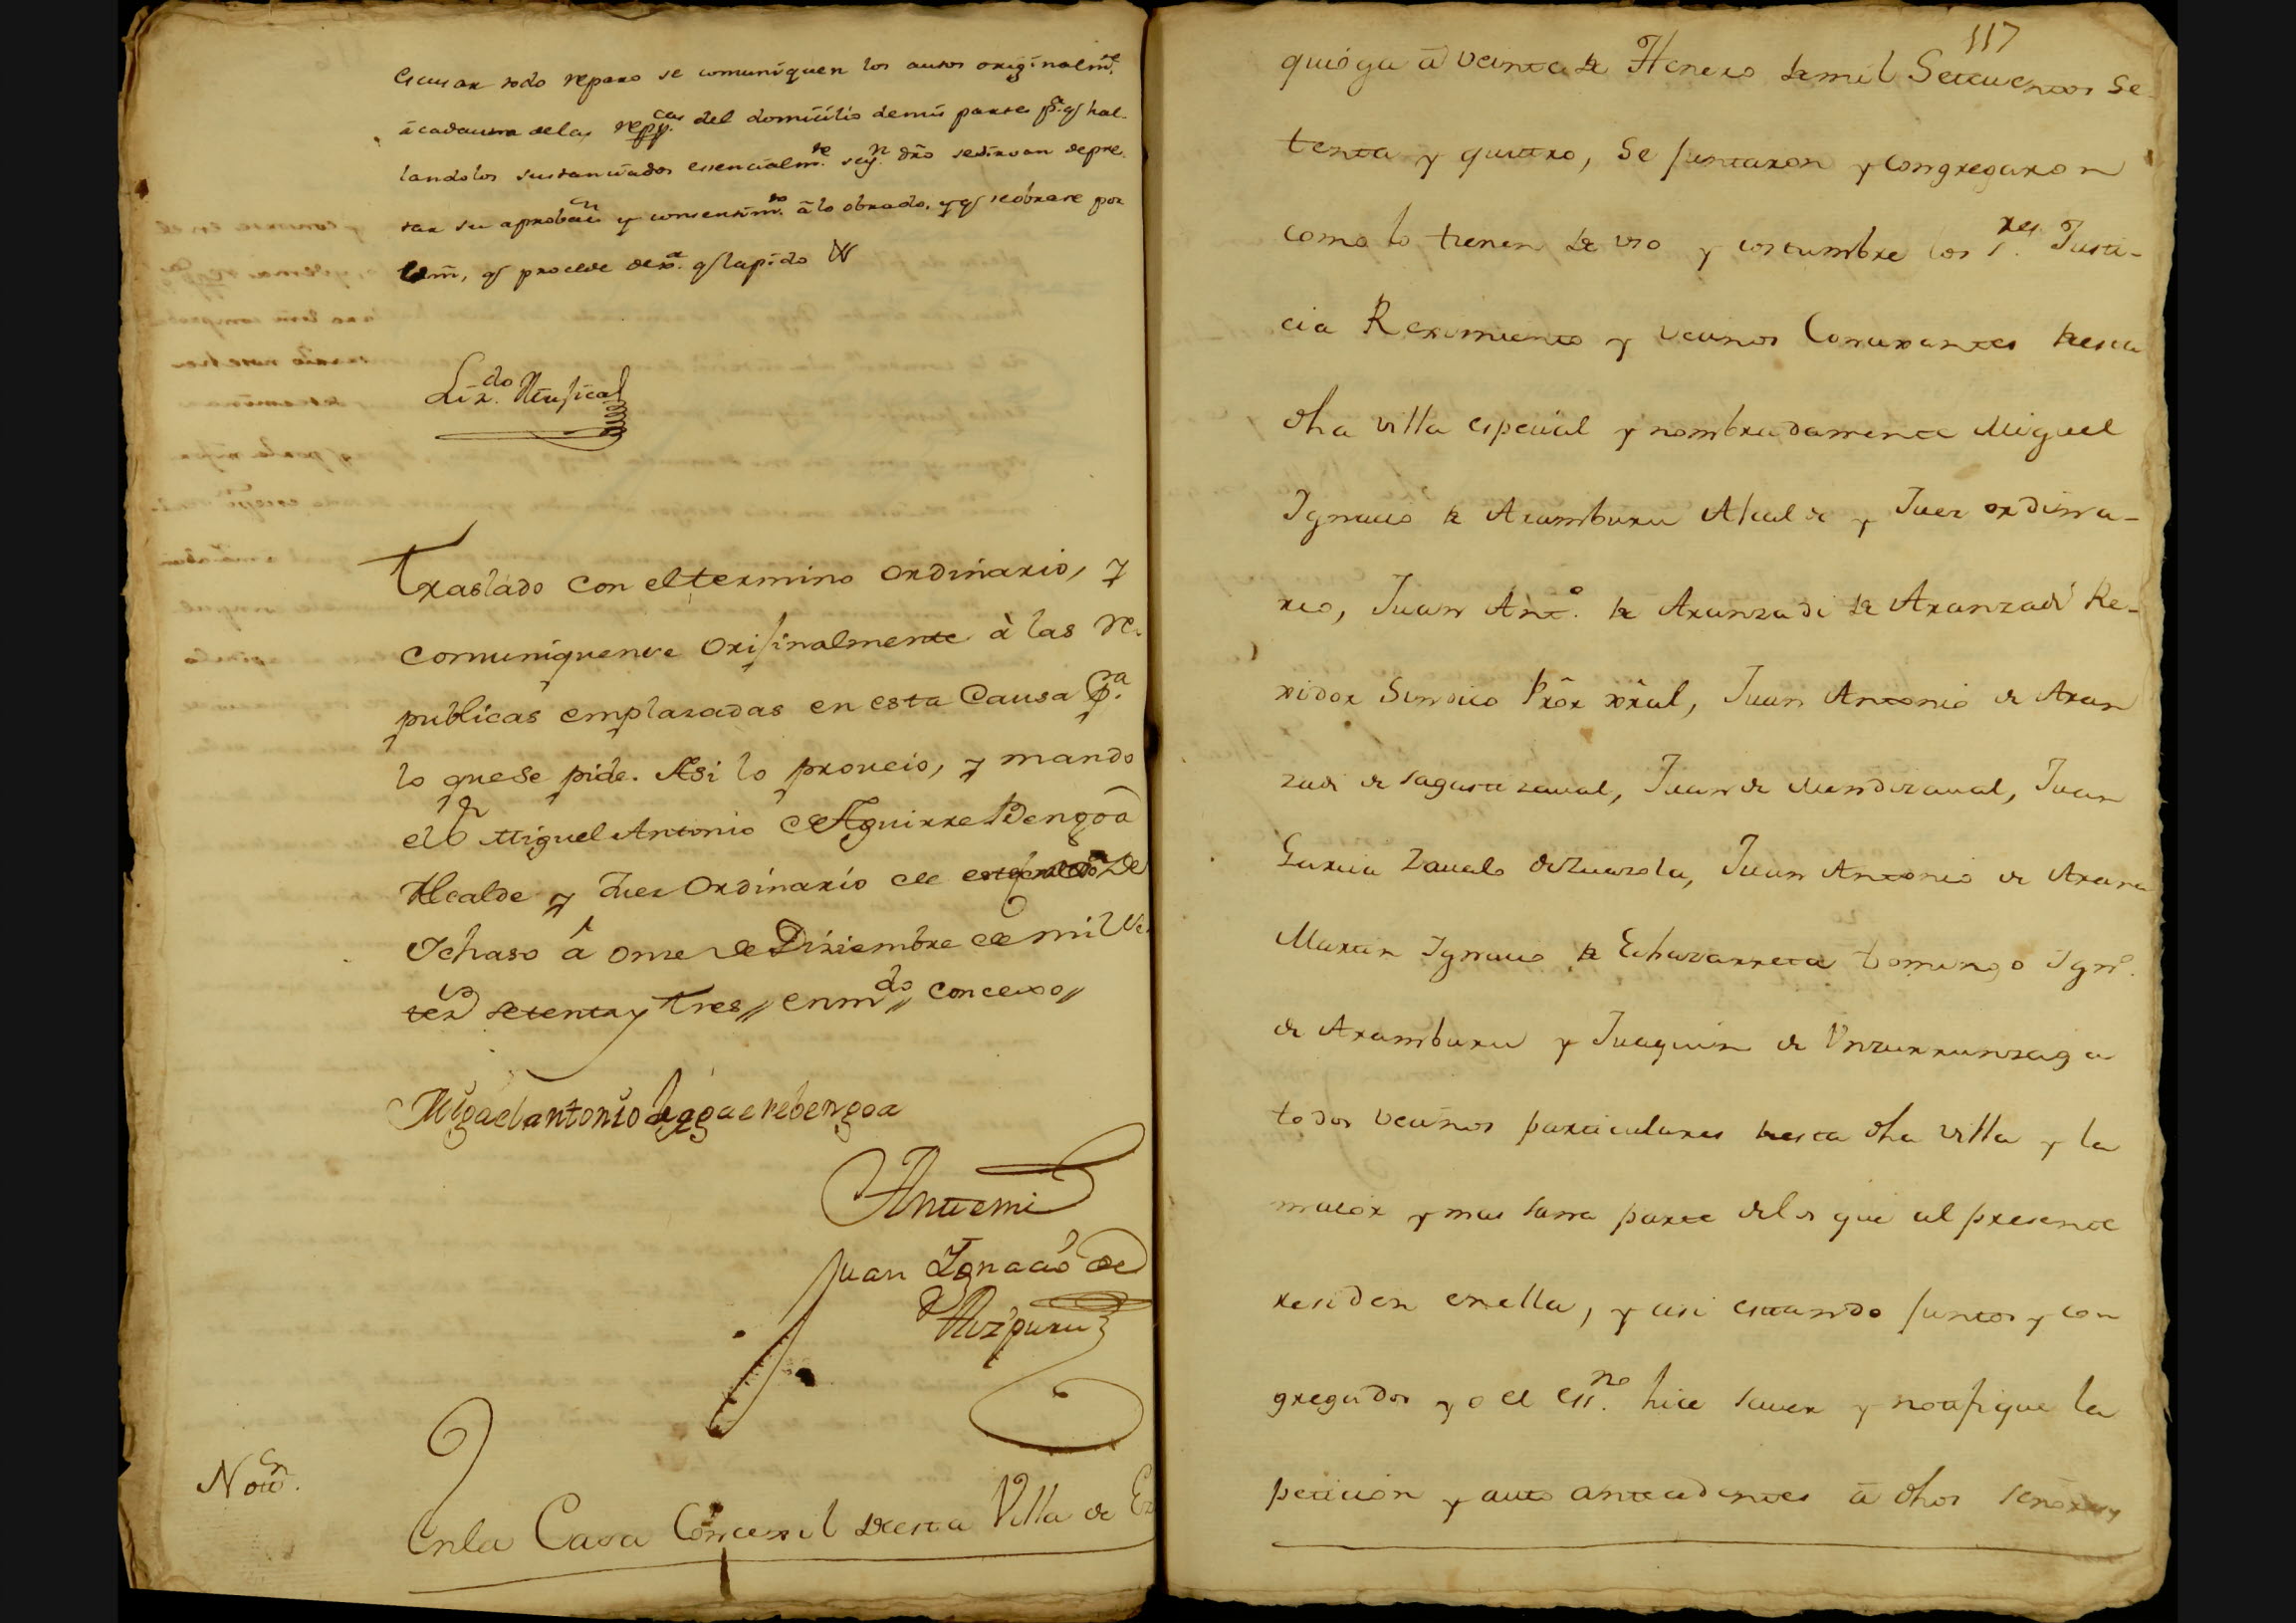 escusar todo reparo se comuniquen los autos originalm.te
à cada una de las repp.cas del domicilio de mis partes p.a q hal-
landolos sustanciados esencialm.te seg.n dr̃o se sirvan de pre
tar su aprobac.n y consentim.to â lo obrado, y q se obrare por
q procede de q la pido
Liz.do Musical
Traslado con el termino ordinario, y
comuniquense orijinalmente à las re-
publicas emplazadas en esta Causa p.a
lo que se pide. Asi lo proveio, y mando
el S.r Miguel Antonio de Aguirre Bengoã
Alcalde y Juez Ordinario de este de
Ichaso â onze de Diziembre de mil se
tez.os setenta y tres // enm.do // concexo //
Miguel antonio de agaerebengoa
Ante mi
Juan Ignacio de
Aizpuru
Notif.n
En la Casa Concexil de esta Villa de Ez
117
quioga â veinte de Henero de mil Setecientos Se
tenta y quatro, se juntaron y congregaron
como lo tienen de uso y costumbre los S.res Justi-
cia Reximiento y vecinos Concexantes de esta
dha villa especial y nombradamente Miguel
Ignacio de Aramburu Alcalde y Juez ordina-
rio, Juan Ant.o de Aranzadi de Aranzadi Re-
xidor Sindico Prõr xrãl, Juan Antonio de Aran
zadi de Sagastizaval, Juan de Mendizaval, Juan
Garcia Zavalo de Zuazola, Juan Antonio de Arana
Martin Ignacio de Echavarreta Domingo Ign.o
de Aramburu y Juaquin de Unzurrunzaga
todos vecinos particulares de esta dha villa y la
maior y mas sana parte de los que al presente
residen en ella, y asi estando juntos y con
gregados yo el ess.no hice saver y notifique la
peticion y auto antecedentes â dhos señores